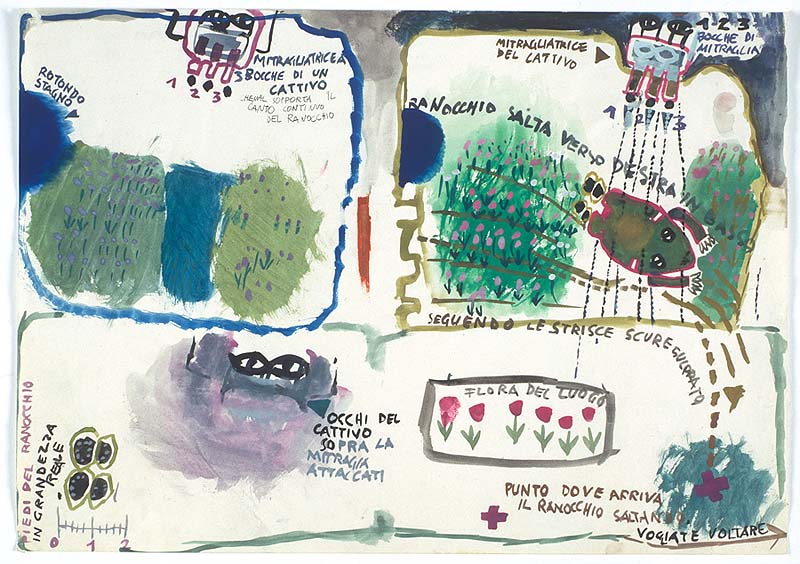 MITRAGLIATRICE A
3 BOCCHE DI UN
CATTIVO
IL
CANTO CONTINUO
DEL RANOCCHIO
1 2 3
ROTONDO
STAGNO
1 2 3
BOCCHE DI
MITRAGLIA
MITRAGLIATRICE
DEL CATTIVO
1 2 3
RANOCCHIO SALTA VERSO DESTRA IN BASSO
SEGUENDO LE STRISCE SCURE
FLORA DEL LUOGO
OCCHI DEL
CATTIVO
SOPRA LA
MITRAGLIA
ATTACCATI
PIEDI DEL RANOCCHIO
IN GRANDEZZA
REALE
0 1 2
PUNTO DOVE ARRIVA
IL RANOCCHIO SALTANDO
VOGLIATE VOLTARE